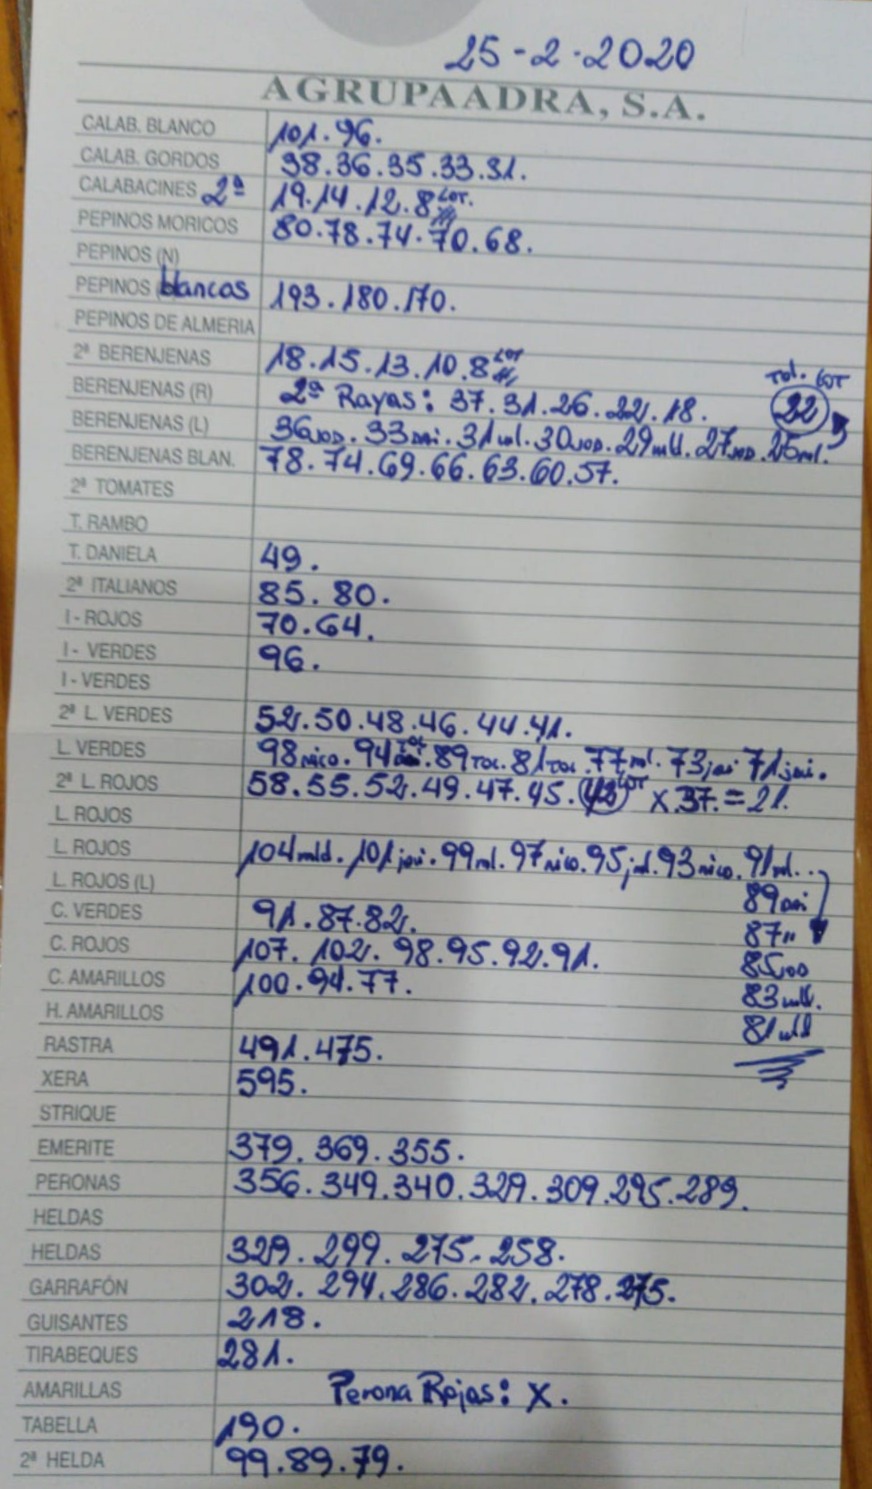 25-2-2020
AGRUPAADRA, S.A.
CALAB. BLANCO 101.96.
CALAB. GORDOS 38.36.35.33.31.
CALABACINES 2ª 19.14.12.8 LOT.
PEPINOS MORICOS 80.78.74.70.68.
PEPINOS (N)
PEPINOS blancos 193.180.170.
PEPINOS DE ALMERIA
2ª BERENJENAS 18.15.13.10.8 LOT
BERENJENAS (R) 2ª Rayas: 37.31.26.22.18. Tol. LOT 22
BERENJENAS (L) 36 . 33 . 31 . 30 . 29 mll. 27 . 25 ml.
BERENJENAS BLAN. 78.74.69.66.63.60.57.
2ª TOMATES
T. RAMBO
T. DANIELA 49.
2ª ITALIANOS 85.80.
I - ROJOS 70.64.
I - VERDES 96.
I - VERDES
2ª L. VERDES 52.50.48.46.44.41.
L. VERDES 98 nico. 94 . 89 Toc. 81 Toc. 77 ml. 73 jai 71 jai.
2ª L. ROJOS 58.55.52.49.47.45. 42 LOT X 37.=21.
L. ROJOS
L. ROJOS 104 mld. 101 jai. 99 ml. 97 nico. 95 . 93 nico. 91 ml...
L. ROJOS (L) 89
C. VERDES 91.87.82. 87 "
C. ROJOS 107.102.98.95.92.91. 85
C. AMARILLOS 100.94.77. 83 mll.
H. AMARILLOS 81 mld
RASTRA 491.475.
XERA 595.
STRIQUE
EMERITE 379.369.355.
PERONAS 356.349.340.329.309.295.289.
HELDAS
HELDAS 329.299.275.258.
GARRAFÓN 302.294.286.282.278.275.
GUISANTES 218.
TIRABEQUES 281.
AMARILLAS Perona Rojas: X.
TABELLA 190.
2ª HELDA 99.89.79.